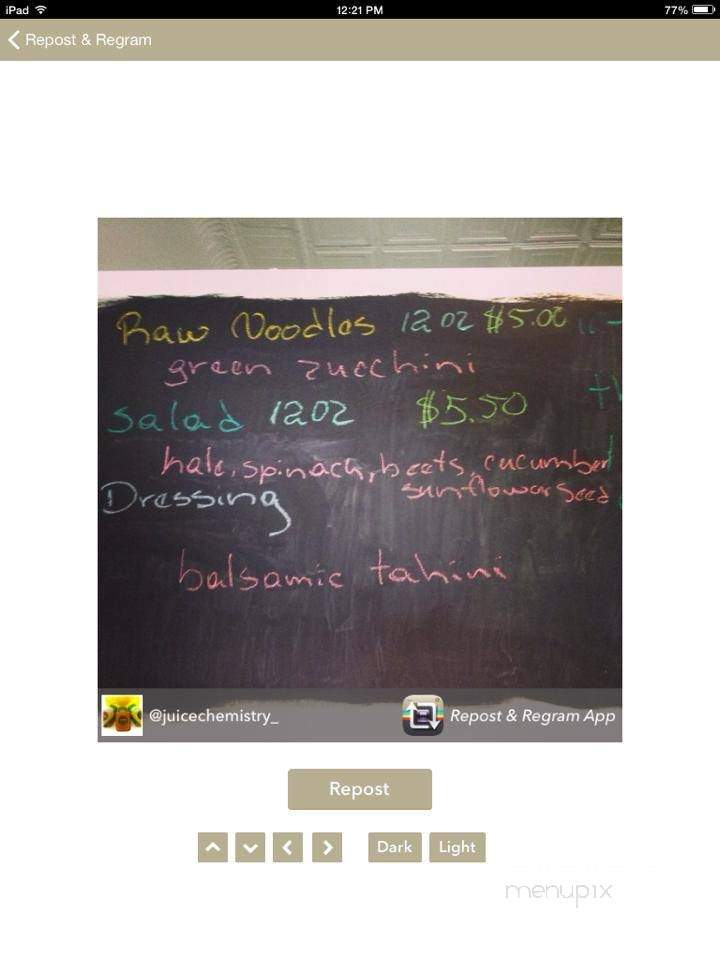 iPad 12:21 PM 77%
Repost & Regram
Raw Noodles 12oz $5.00
green zucchini
Salad 12oz $5.50
kale, spinach, beets, cucumber
sunflower seed
Dressing
balsamic tahini
@juicechemistry_ Repost & Regram App
Repost
Dark Light
menupix